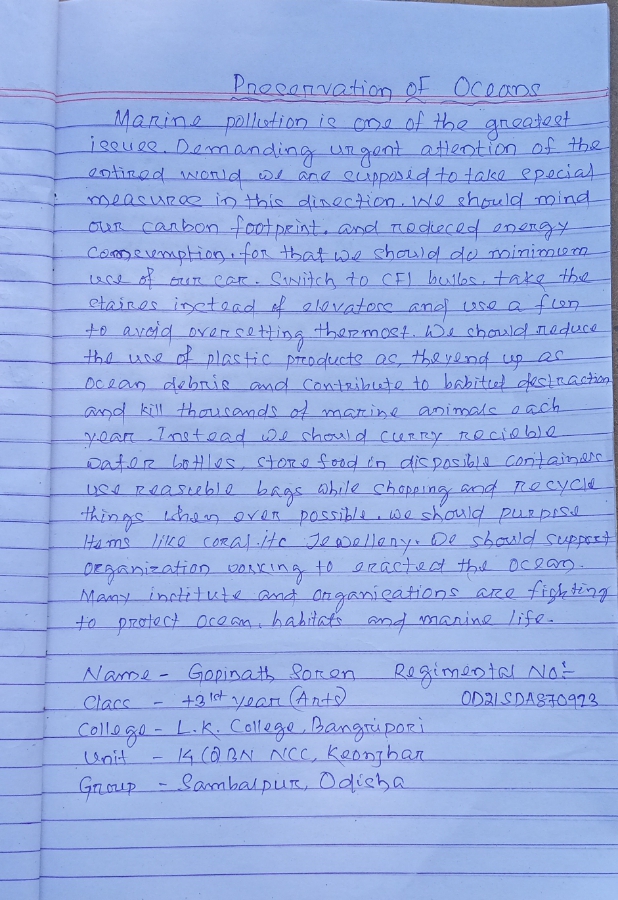 Preservation of Oceans
Marine pollution is one of the greatest
issues. Demanding urgent attention of the
entired world we are supposed to take special
measures in this direction. We should mind
our carbon footprint. and reduced energy
for that we should do minimum
use of our car. Switch to CFl bulbs. take the
staires instead of elevators and use a fun
to avoid oversetting thermost. We should reduce
the use of plastic products as, theyend up as
ocean debris and contribute to babittet destraction
and kill thousands of marine animals each
year. Instead we should curry recieble
water bottles, store food in disposible containers
use reaseuble bags while shopping and recycle
things when ever possible. we should purpose
Items like coral.itc Jewellery. We should support
organization working to eracted the ocean.
Many institute and organications are fighting
to protect ocean, habitats and marine life.
Name - Gopinath Soren Regimental No:-
Class - +3 1st year (Arts) OD21SDA870923
College - L.K. College, Bangriposi
Unit - BN NCC, Keonjhar
Group - Sambalpur, Odisha